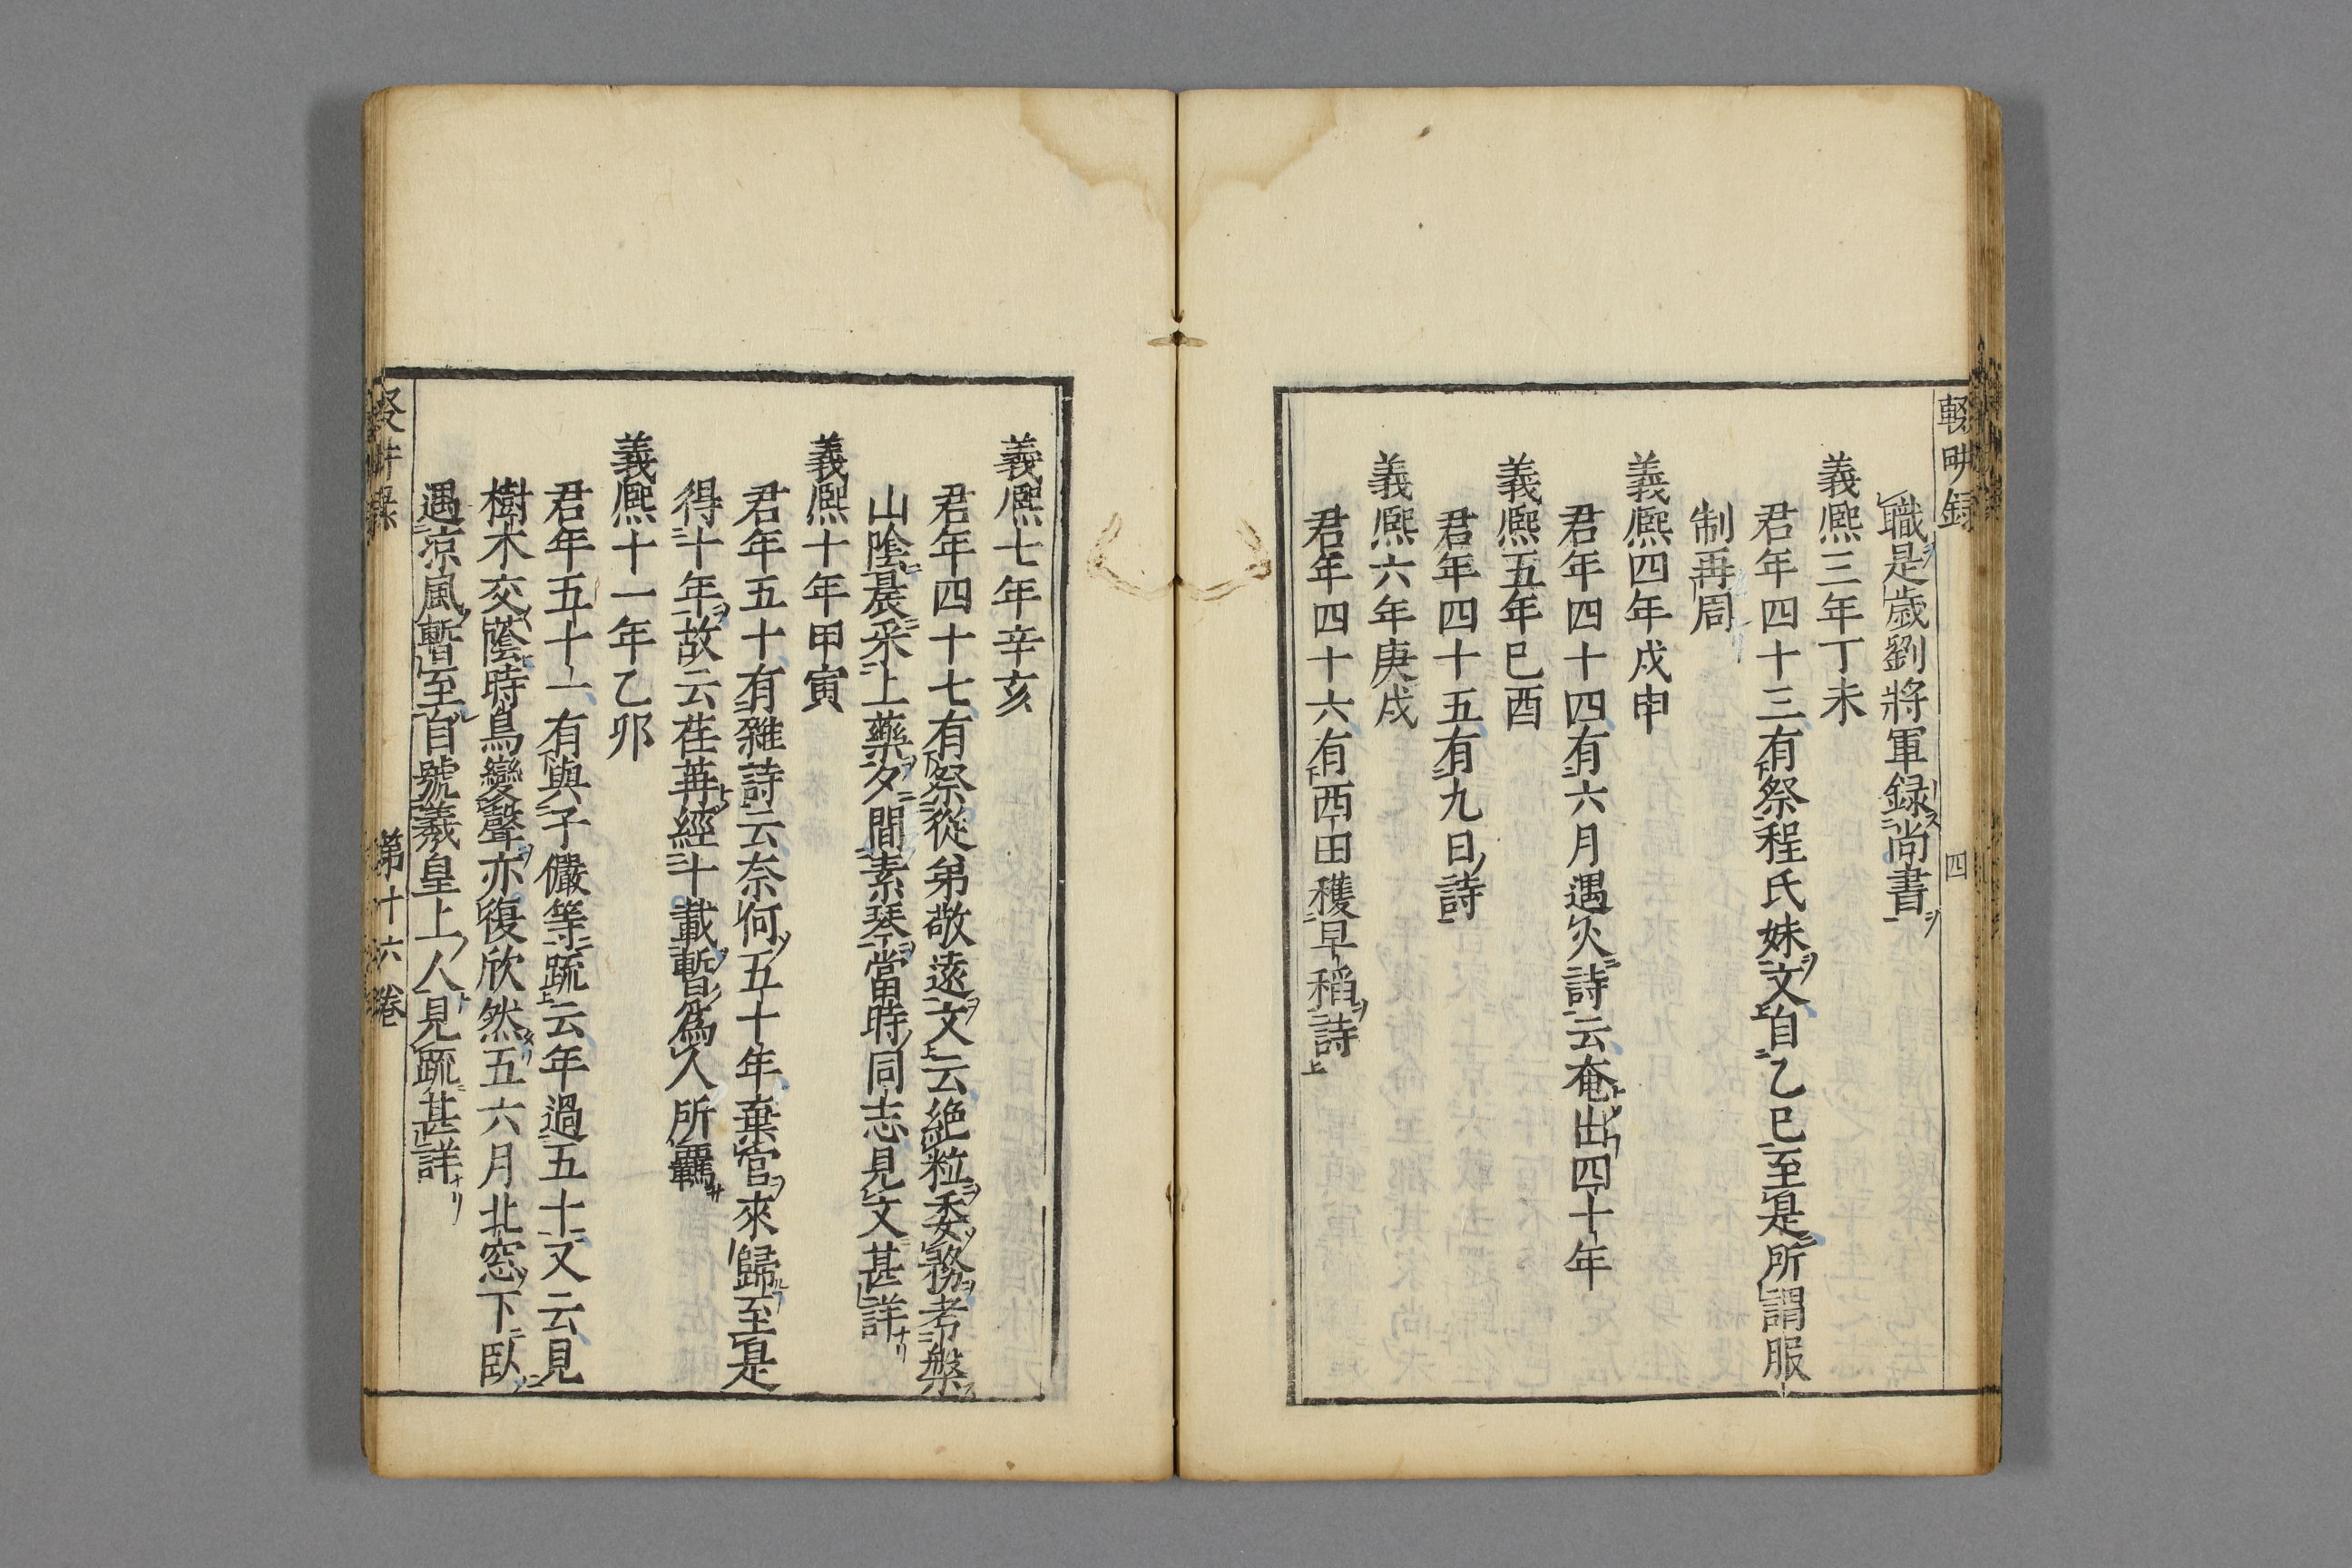 輟畊録
四
職是歳劉將軍録尚書
義熈三年丁未
君年四十三有祭程氏妹文自乙巳至是所謂服
制再周
義熈四年戊申
君年四十四有六月遇火詩云奄出四十年
義熈五年巳酉
君年四十五有九日詩
義熈六年庚戌
君年四十六有西田穫早稻詩
義熈七年辛亥
君年四十七有祭從弟敬遠文云絶粒委務考槃
山隂晨采上藥夕間素琴當時同志見文甚詳
義熈十年甲寅
君年五十有雜詩云奈何五十年棄官來歸至是
得十年故云荏苒經十載暫爲人所羈
義熈十一年乙卯
君年五十一有與子儼等疏云年過五十又云見
樹木交蔭時鳥變聲亦復欣然五六月北窓下臥
遇凉風暫至自號羲皇上人見疏甚詳
第十六卷